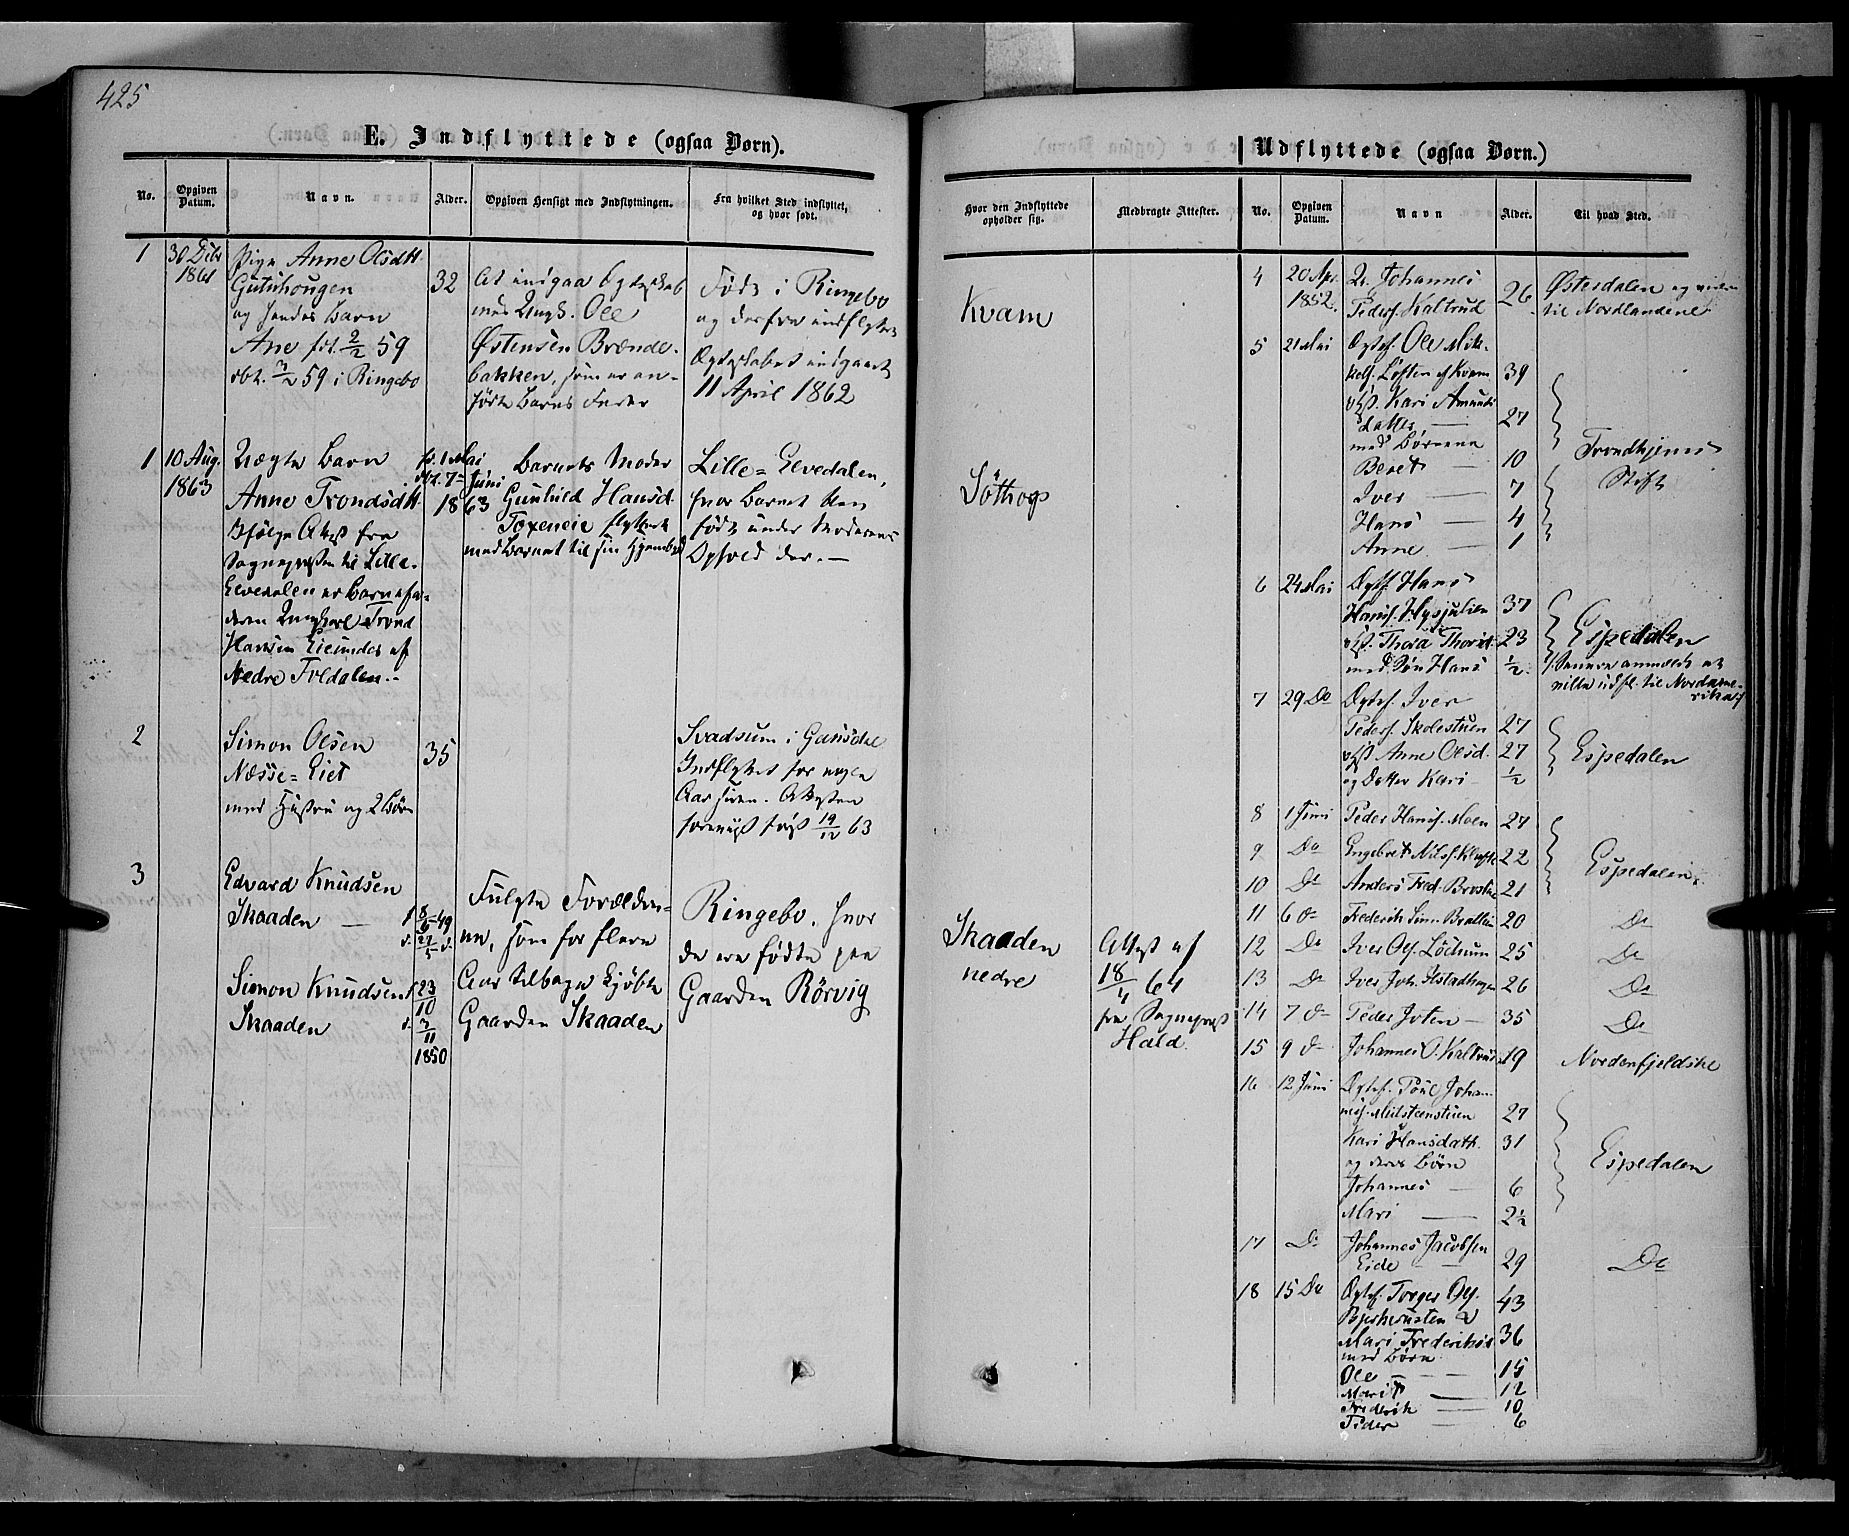 425
E. Indflyttede (ogsaa Børn).
No.
Opgiven Datum.
Navn.
Alder.
Opgiven Hensigt med Indflytningen.
Fra hvilket Sted indflyttet, og hvor født.
1
30 Debr
1861
Pige Anne Olsdtt.
Gutuhougen
og hendes Barn
Ane fdt. 2/2 59
dbt. 3/2 59 i Ringebo
32
At indgaa Egteskab
med Ungk. Ole
Østensen Brænde-
bakken, som er an-
førte Barns Fader
Født i Ringebo
og derfra indflyttet
Egteskabet indgaaet
11 April 1862
1
10 Aug.
1863
Uægte Barn
Anne Trondsdtt
Ifølge Attest fra
Sognepresten til Lille-
Elvedalen er Barnefa-
deren Ungkarl Trond
Hansen Eiendes af
Nedre Foldalen.-
fd. 1 Mai
dbt. 7 Juni
1863
Barnets Moder
Gunhild Hansd.
Toxeneie flyttet
med Barnet til sin Hjembgd
Lille-Elvedalen,
hvor Barnet blev
født under Moderens
Ophold der.-
2
Simon Olsen
Næsse-Eiet
med Hustru og 2 Børn
35
Svadsum i Gausdal
Indflyttet for nogle
Aar siden. Attesten
forevist først 19/12 63
3
Edvard Knudsen
Skaaden
f 8/6 49
d. 27/5 d.
Simon Knudsen
Skaaden
f 23/10
d. 3/11
1850
Fulgte Forældre-
ne, som for flere
Aar tilbage kjøbte
Gaarden Skaaden
Ringebo, hvor
de ere fødte paa
Gaarden Rörvig
Udflyttede (ogsaa Børn.)
Hvor den Indflyttede opholder sig.
Medbragte Attester.
No.
Opgiven Datum.
Navn
Alder.
Til hvad Sted.
Kvam
Söthorp
Skaaden
nedre
Attest af
18/4 64
fra Sogneprest
Hald.
4 20 Apr. 1852. U. Johannes
Peders. Kaltrud 26 Østerdalen og videre
til Nordlandene
5 21 Mai Egtef. Ole Mik-
kels. Løften af Kvam 39
og Kari Amunds
datter 27
med Børnene
Beret 10 Trondhjems
Iver 7 Stift
Hans 4
Anne 1
6 24 Mai Egtf. Hans
Hans. Hysjulien 37
og Thora Thorsd. 23 Espedalen
med Søn Hans 1/2
(Senere anmeldt at
ville udfl. til Nordame-
rika)
7 29 Do Egtef. Iver
Peders. Skolestuen 27
og Anne Olsd. 27 Espedalen
og Datter Kari 1/2
8 1 Juni Peder Hans. Moen 27
9 Do Engebret Nils. Klufte 22 Espedalen
10 Do Anders Fred. 21
11 6 Do Frederik Sim. 20 Do
12 Do Iver Ols. 25 Do
13 Do Iver Joh. Ilstadhagen 26 Do
14 7 Do Peder Joten 35 Do
15 9 Do Johannes O. Kaltrud 19 Nordenfjeldske
16 12 Juni Egtef. Poul Johan-
nes. Milsteenstuen 27
Kari Hansdath. 31
og deres Børn Espedalen
Johannes 6
Mari 2½
17 Do Johannes Jacobsen
Eide 29 Do
18 15 Do Egtef. Torger Ols. 43
Bjerkerusten &
Mari Frederiksd. 36
med Børn
Ole 15
Marit 12
Frederik 10
Peder 6